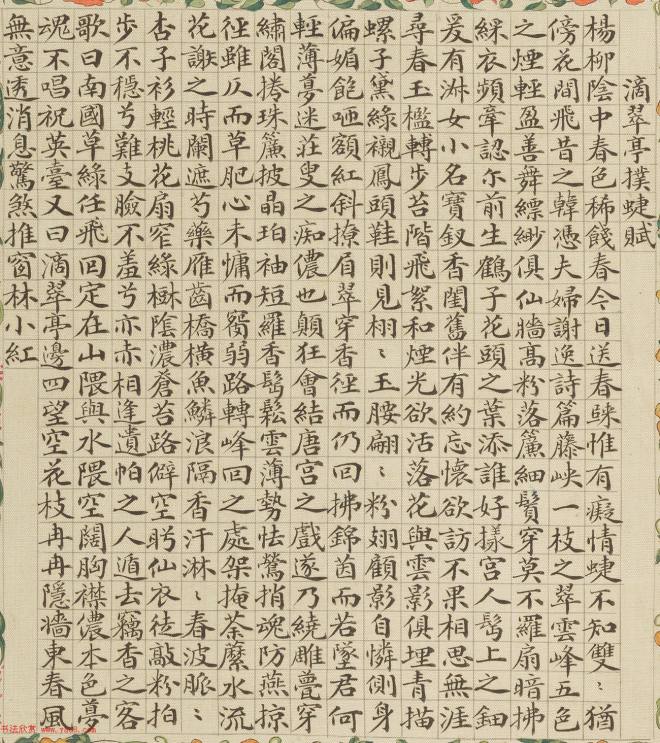 滴翠亭撲蜨賦
楊柳陰中春色稀餞春今日送春歸惟有癡情蜨不知雙〻猶
傍花間飛昔之韓憑夫婦謝逸詩篇滕峽一枝之翠雲峰五色
之煙輕盈善舞縹緲俱仙牆高粉落簾細鬢穿莫不羅扇暗拂
綵衣頻牽認尒前生鶴子花頭之葉添誰好樣宮人髻上之鈿
爰有淋女小名寶釵香閨舊伴有約忘懷欲訪不果相思無涯
尋春玉檻轉步苔階飛絮和煙光欲活落花與雲影俱埋青描
螺子黛綠襯鳳頭鞋則見栩〻玉腰翩〻粉翅顧影自憐側身
偏媚飽咂額紅斜撩眉翠穿香徑而仍回拂錦茵而若墜君何
輕薄夢迷莊叟之痴儂也顛狂會結唐宮之戲遂乃繞雕甍穿
繡閣捲珠簾披晶珀袖短羅香髻鬆雲薄勢怯鶯捎魂防燕掠
徑雖仄而草肥心未慵而鬢弱路轉峰回之處架掩荼蘼水流
花謝之時闌遮芍藥雁齒橋橫魚鱗浪隔香汗淋〻春波脈〻
杏子衫輕桃花扇窄綠樹陰濃蒼苔路僻空盻仙衣徒敲粉拍
步不穩兮難支臉不羞兮亦赤相逢遺帕之人遁去竊香之客
歌曰南國草綠任飛回定在山隈與水隈空闊胸襟儂本色夢
魂不唱祝英臺又曰滴翠亭邊四望空花枝冉冉隱牆東春風
無意透消息驚煞推窗林小紅
书法欣赏 www.yac8.com